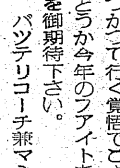 つかつて行く覚悟でご
どうか今年のフアイト
を御期待下さい。
バツテリコーチ兼マ